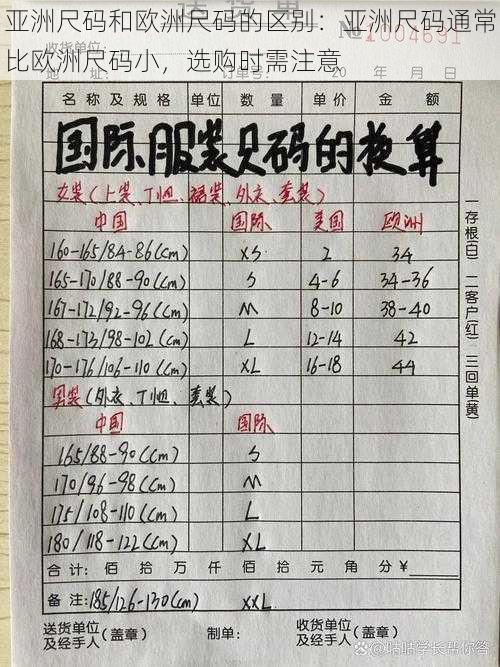 亚洲尺码和欧洲尺码的区别：亚洲尺码通常
比欧洲尺码小，选购时需注意
送货单
收货单位： №1004691
地址： 单号： 20 年 月 日
名称及规格 单位 数量 单价 金额
国际服装尺码的换算
女装(上装、T恤、裙装、外衣、套装)
中国 国际 美国 欧洲
160-165/84-86(cm) XS 2 34
165-170/88-90(cm) S 4-6 34-36
167-172/92-96(cm) M 8-10 38-40
168-173/98-102(cm) L 12-14 42
170-176/106-110(cm) XL 16-18 44
男装(外衣、T恤、套装)
中国 国际
165/88-90(cm) S
170/96-98(cm) M
175/108-110(cm) L
180/118-122(cm) XL
合计： 佰 拾 万 仟 佰 拾 元 角 分 ¥
备注：185/126-130(cm) XXL
送货单位
及经手人(盖章)
制单：
收货单位
及经手人(盖章)
一存根(白) 二客户(红) 三回单(黄)
@咕咕学长帮你答